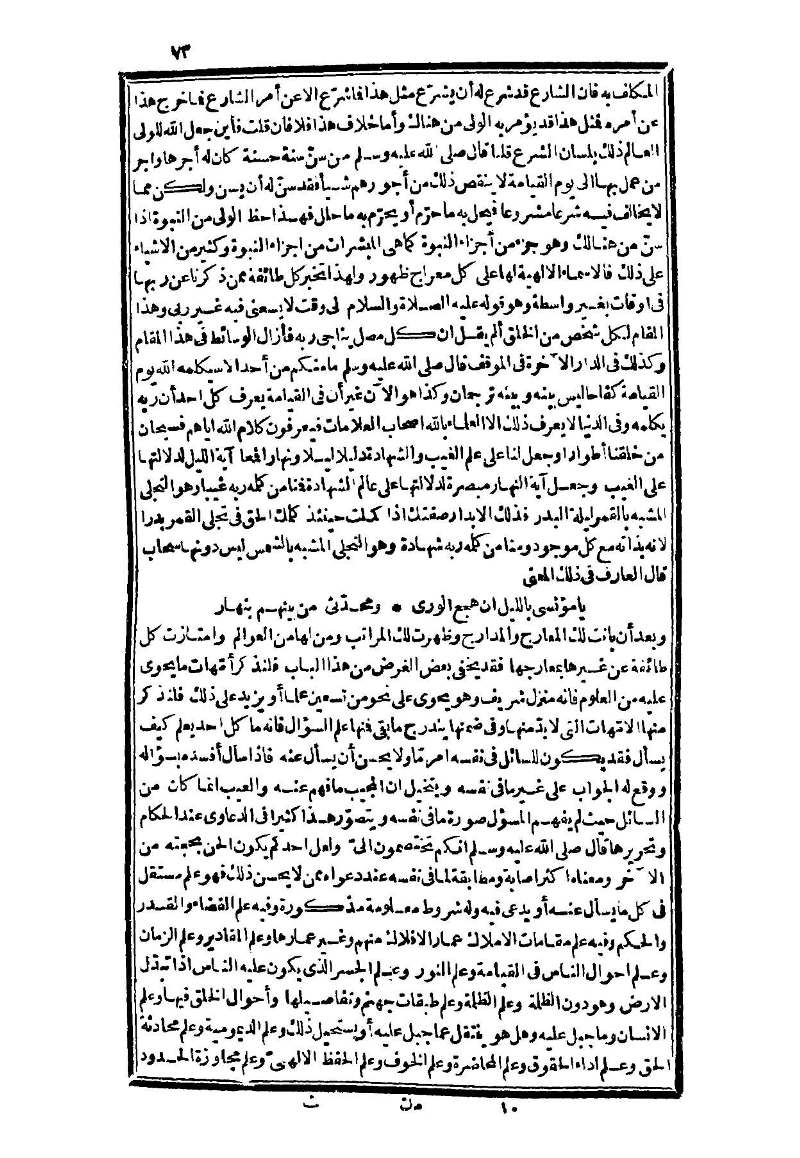 ٧٣
المكلف به فان الشارع قد شرع له أن يشرع مثل هذا فما شرع الا عن أمر الشارع فما خرج هذا
عن أمره فمثل هذا قد يؤمر به الولى من هناك وأما خلاف هذا فلا فان قلت فأين جعل الله للولى
العالم ذلك بلسان الشرع قلنا قال صلى الله عليه وسلم من سنّ سنة حسنة كان له أجرها واجر
من عمل بها الى يوم القيامة لا ينقص ذلك من أجورهم شيأ فقد سنّ له أن يسن ولكن مما
لا يخالف فيه شرعا مشروعا فيحل به ما حرّم أو يحرّم به ما حلل فهذا حظ الولى من النبوة اذا
سنّ من هنالك وهو جزء من أجزاء النبوة كما هى المبشرات من اجزاء النبوة وكثير من الاشياء
على ذلك فالاسماء الالهية لها على كل معراج ظهور ولهذا تخبر كل طائفة ممن ذكرنا عن ربها
فى اوقات بغير واسطة وهو قوله عليه الصلاة والسلام لى وقت لا يسعنى فيه غير ربى وهذا
المقام لكل شخص من الخلق ألم يقل ان كل مصل يناجى ربه فأزال الوسائط فى هذا المقام
وكذلك فى الدار الآخرة فى الموقف قال صلى الله عليه وسلم ما منكم من أحد الا سيكلمه الله يوم
القيامة كفاحا ليس بينه وبينه ترجمان وكذا هو الآن غير أن فى القيامة يعرف كل احد أن ربه
يكلمه وفى الدنيا لا يعرف ذلك الا العلماء بالله اصحاب العلامات فيعرفون كلام الله اياهم فسبحان
من خلقنا أطوارا وجعل لنا على علم الغيب والشهادة دليلا ليلا ونهارا فمحا آية الليل لدلالتها
على الغيب وجعل آية النهار مبصرة لدلالتها على عالم الشهادة فمنا من كلمه ربه غيبا وهو التجلى
المشبه بالقمر ليلة البدر فذلك الابدار صفتك اذا كملت حينئذ كملك الحق فى تجلى القمر بدرا
لانه بذاته مع كل موجود ومنا من كلمه ربه شهادة وهو التجلى المشبه بالشمس ليس دونها سحاب
قال العارف فى ذلك المعنى
يا مؤنسى بالليل ان هجع الورى • ومحدّثى من بينهم بنهار
وبعد أن بانت لك المعارج والمدارج وظهرت لك المراتب ومن لها من العوالم وامتازت كل
طائفة عن غيرها بمعارجها فقد يخفى بعض الغرض من هذا الباب فلنذكر أمهات ما يحوى
عليه من العلوم فانه منزل شريف وهو يحوى على نحو من تسعين علما أو يزيد على ذلك فلنذكر
منها الامهات التى لا بدّ منها وفى ضمنها يندرج ما بقى فمنها علم السؤال فانه ما كل احد يعلم كيف
يسأل فقد يكون للسائل فى نفسه امر مّا ولا يحسن أن يسأل عنه فاذا سأل أفسده بسؤاله
ووقع له الجواب على غير ما فى نفسه ويتخيل ان المجيب ما فهم عنه والعيب انما كان من
السائل حيث لم يفهم المسؤل صورة ما فى نفسه ويتصوّر هذا كثيرا فى الدعاوى عند الحكام
وتحريرها قال صلى الله عليه وسلم انكم تختصمون الىّ ولعل احدكم يكون الحن بحجته من
الآخر ومعناه اكثر اصابة ومطابقة لما فى نفسه عند دعواه ممن لا يحسن ذلك فهو علم مستقل
فى كل ما يسأل عنه أو يدعى فيه وله شروط معلومة مذكورة وفيه علم القضاء والقدر
والحكم وفيه علم مقامات الاملاك عمار الافلاك منهم وغير عمارها وعلم المقادير وعلم الزمان
وعلم احوال الناس فى القيامة وعلم النور وعلم الجسر الذى يكون عليه الناس اذا تبدّل
الارض وهو دون الظلة وعلم الظلة وعلم طبقات جهنم وتفاصيلها وأحوال الخلق فيها وعلم
الانسان وما جبل عليه وهل هو ينتقل عما جبل عليه أو يستحيل ذلك وعلم الديومية وعلم محادثة
الحق وعلم اداء الحقوق وعلم المحاضرة وعلم الخوف وعلم الحفظ الالهىّ وعلم مجاوزة الحدود
١٠ من ث